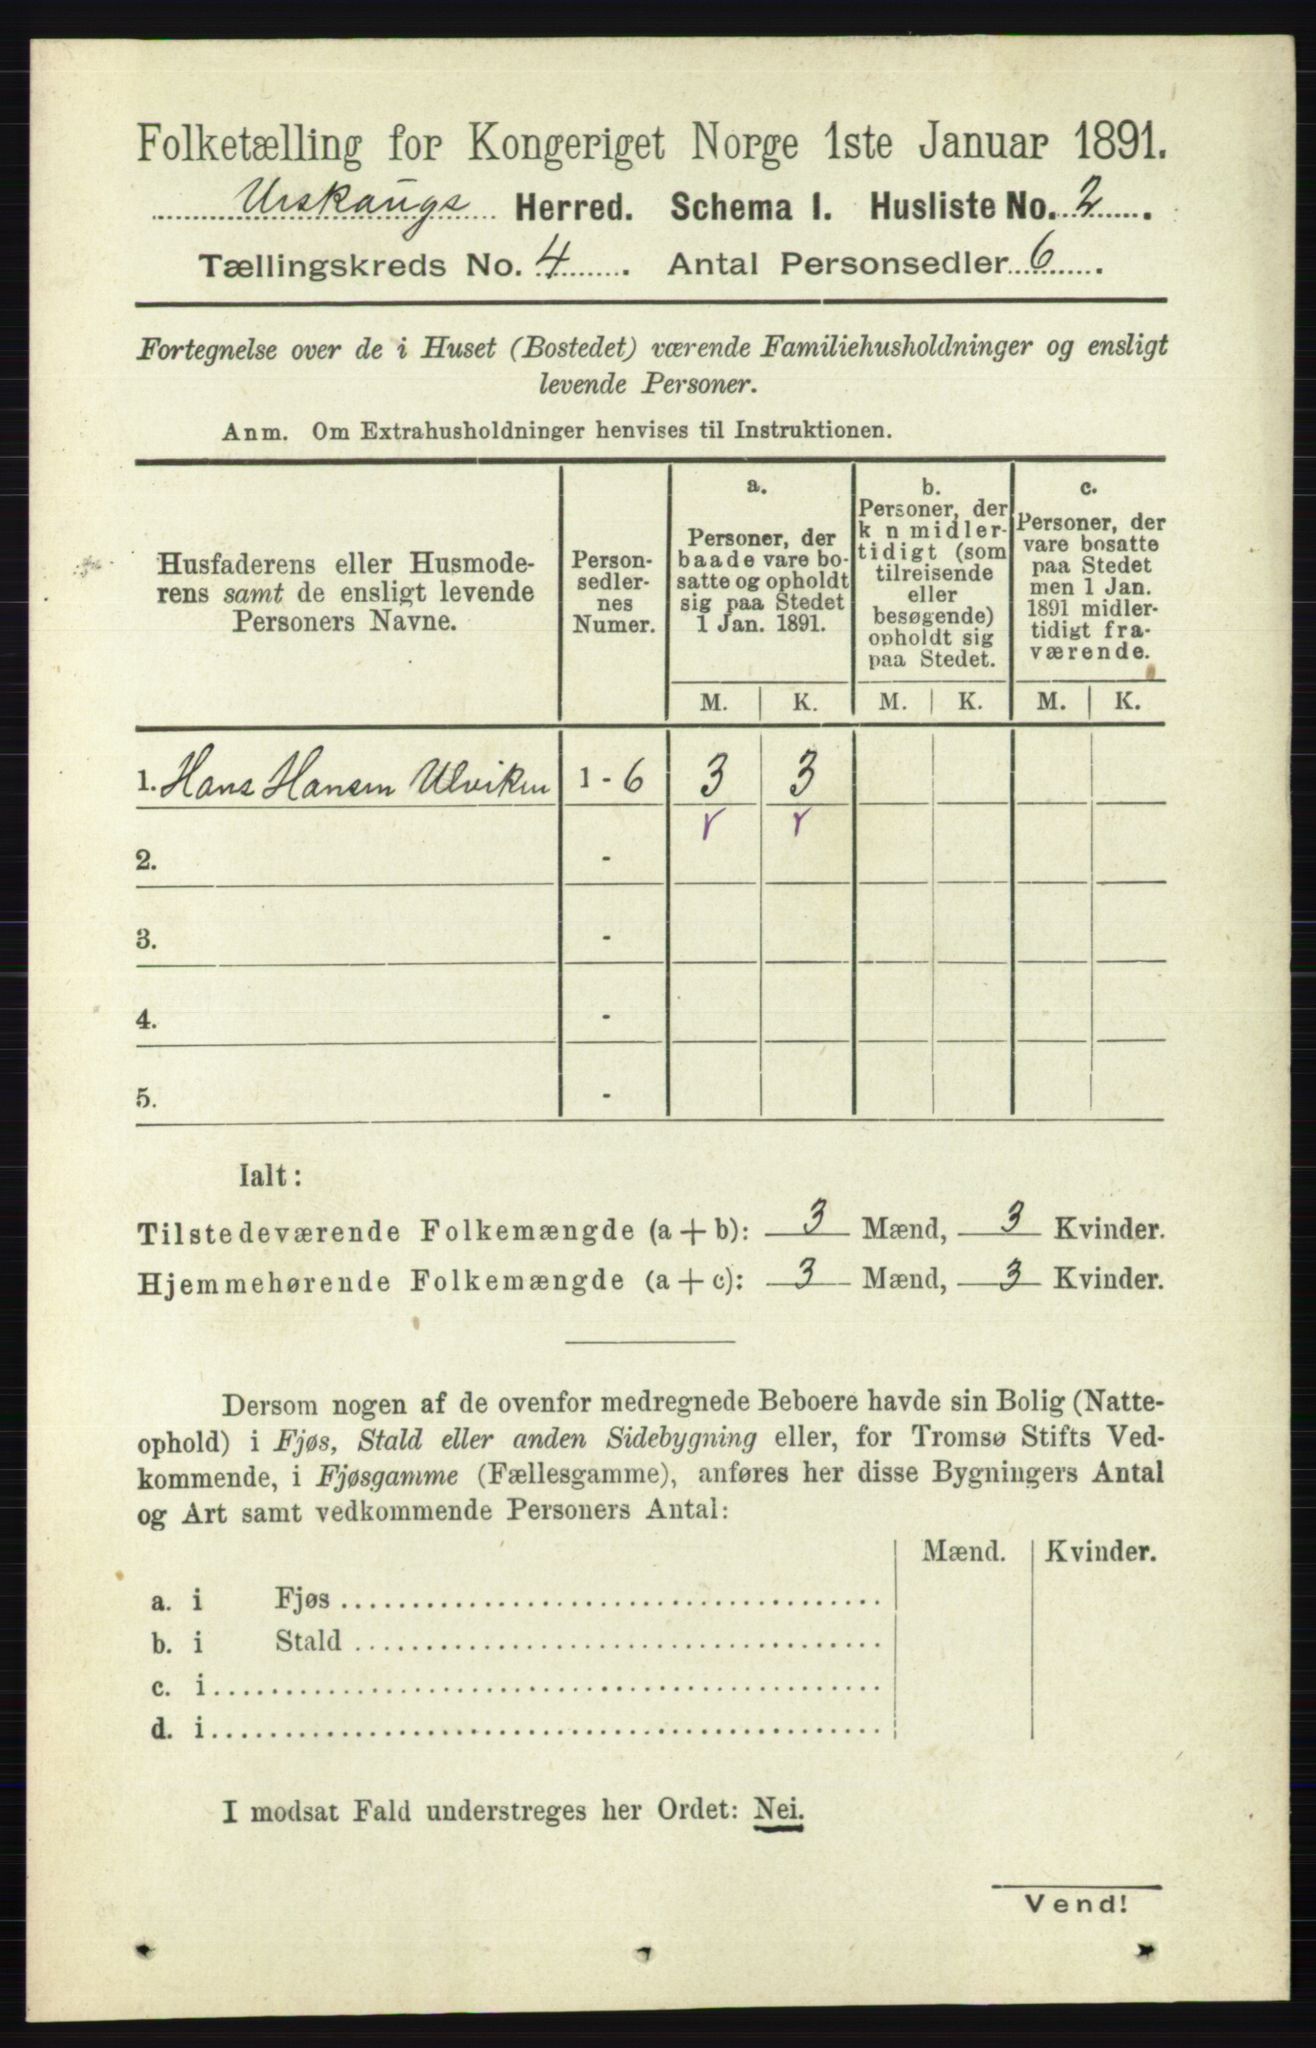 Folketælling for Kongeriget Norge 1ste Januar 1891.
Urskaugs Herred. Schema I. Husliste No. 2.
Tællingskreds No. 4. Antal Personsedler 6.
Fortegnelse over de i Huset (Bostedet) værende Familiehusholdninger og ensligt
levende Personer.
Anm. Om Extrahusholdninger henvises til Instruktionen.
Husfaderens eller Husmode-
rens samt de ensligt levende
Personers Navne.
Person-
sedler-
nes
Numer.
a.
Personer, der
baade vare bo-
satte og opholdt
sig paa Stedet
1 Jan. 1891.
b.
Personer, der
k n midler-
tidigt (som
tilreisende
eller
besøgende)
opholdt sig
paa Stedet.
c.
Personer, der
vare bosatte
paa Stedet
men 1 Jan.
1891 midler-
tidigt fra-
værende.
M. K. M. K. M. K.
1. Hans Hansen Ulviken 1 - 6 3 3
2. -
3. -
4. -
5. -
Ialt:
Tilstedeværende Folkemængde (a + b): 3 Mænd, 3 Kvinder.
Hjemmehørende Folkemængde (a + c): 3 Mænd, 3 Kvinder.
Dersom nogen af de ovenfor medregnede Beboere havde sin Bolig (Natte-
ophold) i Fjøs, Stald eller anden Sidebygning eller, for Tromsø Stifts Ved-
kommende, i Fjøsgamme (Fællesgamme), anføres her disse Bygningers Antal
og Art samt vedkommende Personers Antal:
Mænd. Kvinder.
a. i Fjøs
b. i Stald
c. i
d. i
I modsat Fald understreges her Ordet: Nei.
Vend!